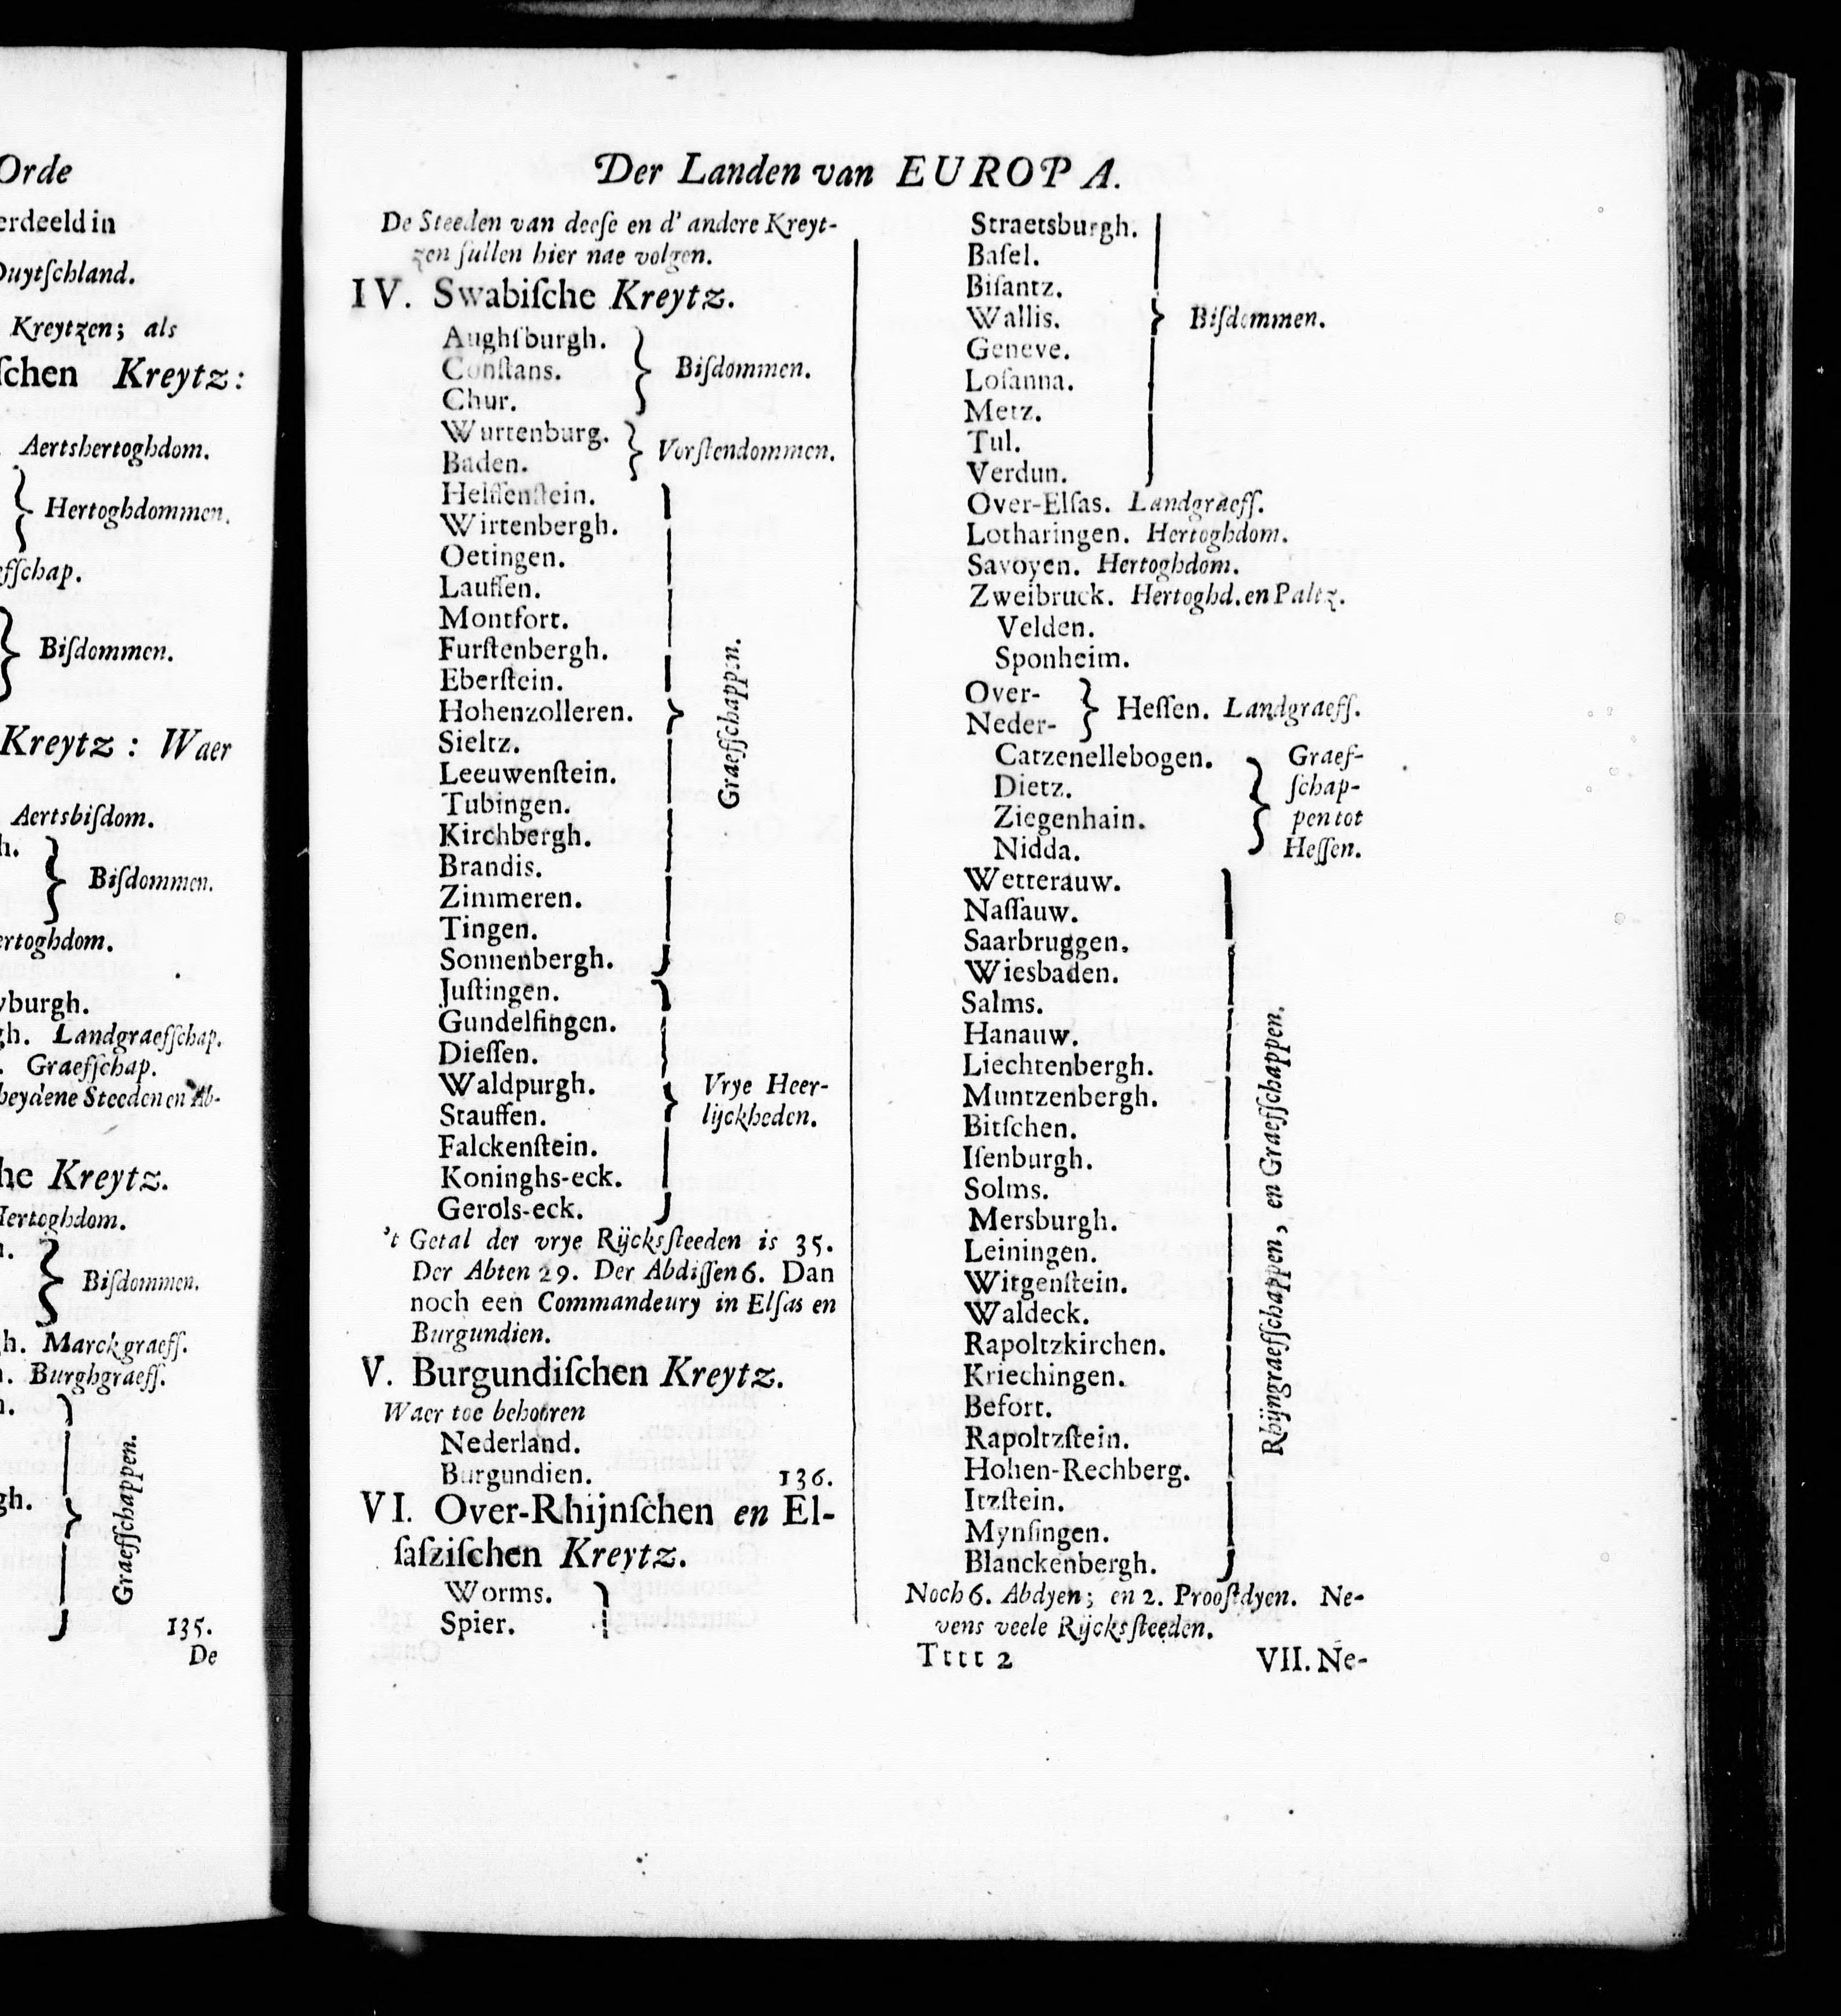 Orde
erdeeld in
Duytſchland.
Kreytzen; als
ſchen Kreytz:
Aertshertoghdom.
Hertoghdommen.
efſchap.
Biſdommen.
Kreytz: Waer
Aertsbiſdom.
h.
Biſdommen.
ertoghdom.
yburgh.
gh. Landgraefſchap.
. Graefſchap.
beydene Steeden en Ab-
he Kreytz.
Hertoghdom.
Biſdommen.
gh. Marckgraefſ.
n. Burghgraefſ.
gh.
Graefſchappen.
135.
De
Der Landen van EUROPA.
De Steeden van deeſe en d' andere Kreyt-
zen ſullen hier nae volgen.
IV. Swabiſche Kreytz.
Aughſburgh.
Conſtans.
Chur.
Biſdommen.
Wurtenburg.
Baden.
Vorſtendommen.
Helffenſtein.
Wirtenbergh.
Oetingen.
Lauffen.
Montfort.
Furſtenbergh.
Eberſtein.
Hohenzolleren.
Sieltz.
Leeuwenſtein.
Tubingen.
Kirchbergh.
Brandis.
Zimmeren.
Tingen.
Sonnenbergh.
Graefſchappen.
Juſtingen.
Gundelfingen.
Dieſſen.
Waldpurgh.
Stauffen.
Falckenſtein.
Koninghs-eck.
Gerols-eck.
Vrye Heer-
lijckheden.
't Getal der vrye Rijcksſteeden is 35.
Der Abten 29. Der Abdiſſen 6. Dan
noch een Commandeury in Elſas en
Burgundien.
V. Burgundiſchen Kreytz.
Waer toe behooren
Nederland.
Burgundien. 136.
VI. Over-Rhijnſchen en El-
ſaſziſchen Kreytz.
Worms.
Spier.
Straetsburgh.
Baſel.
Biſantz.
Wallis.
Geneve.
Loſanna.
Metz.
Tul.
Verdun.
Biſdommen.
Over-Elſas. Landgraefſ.
Lotharingen. Hertoghdom.
Savoyen. Hertoghdom.
Zweibruck. Hertoghd. en Paltz.
Velden.
Sponheim.
Over-
Neder-
Heſſen. Landgraefſ.
Catzenellebogen.
Dietz.
Ziegenhain.
Nidda.
Graef-
ſchap-
pen tot
Heſſen.
Wetterauw.
Naſſauw.
Saarbruggen.
Wiesbaden.
Salms.
Hanauw.
Liechtenbergh.
Muntzenbergh.
Bitſchen.
Iſenburgh.
Solms.
Mersburgh.
Leiningen.
Witgenſtein.
Waldeck.
Rapoltzkirchen.
Kriechingen.
Befort.
Rapoltzſtein.
Hohen-Rechberg.
Itzſtein.
Mynſingen.
Blanckenbergh.
Rhijngraefſchappen, en Graefſchappen.
Noch 6. Abdyen; en 2. Prooſtdyen. Ne-
vens veele Rijcksſteeden.
Tttt 2 VII. Ne-